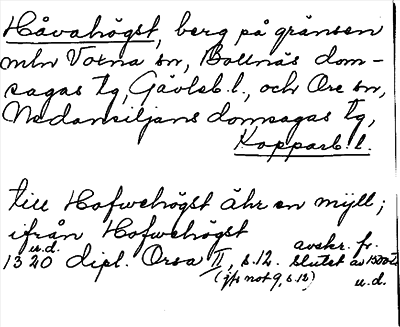 Håvahögst, berg på gränsen
mln Voxna sn, Bollnäs dom-
sagas tg, Gävleb. l., och Ore sn,
Nedansiljans domsagas tg,
Kopparb. l.
till Hofwehögst ähr en mijll;
ifrån Hofwehögst
u.d. avskr. fr.
1320 dipl. Orsa II, s. 12. slutet av 1500-t.
(jfr not 9, s. 12) u.d.